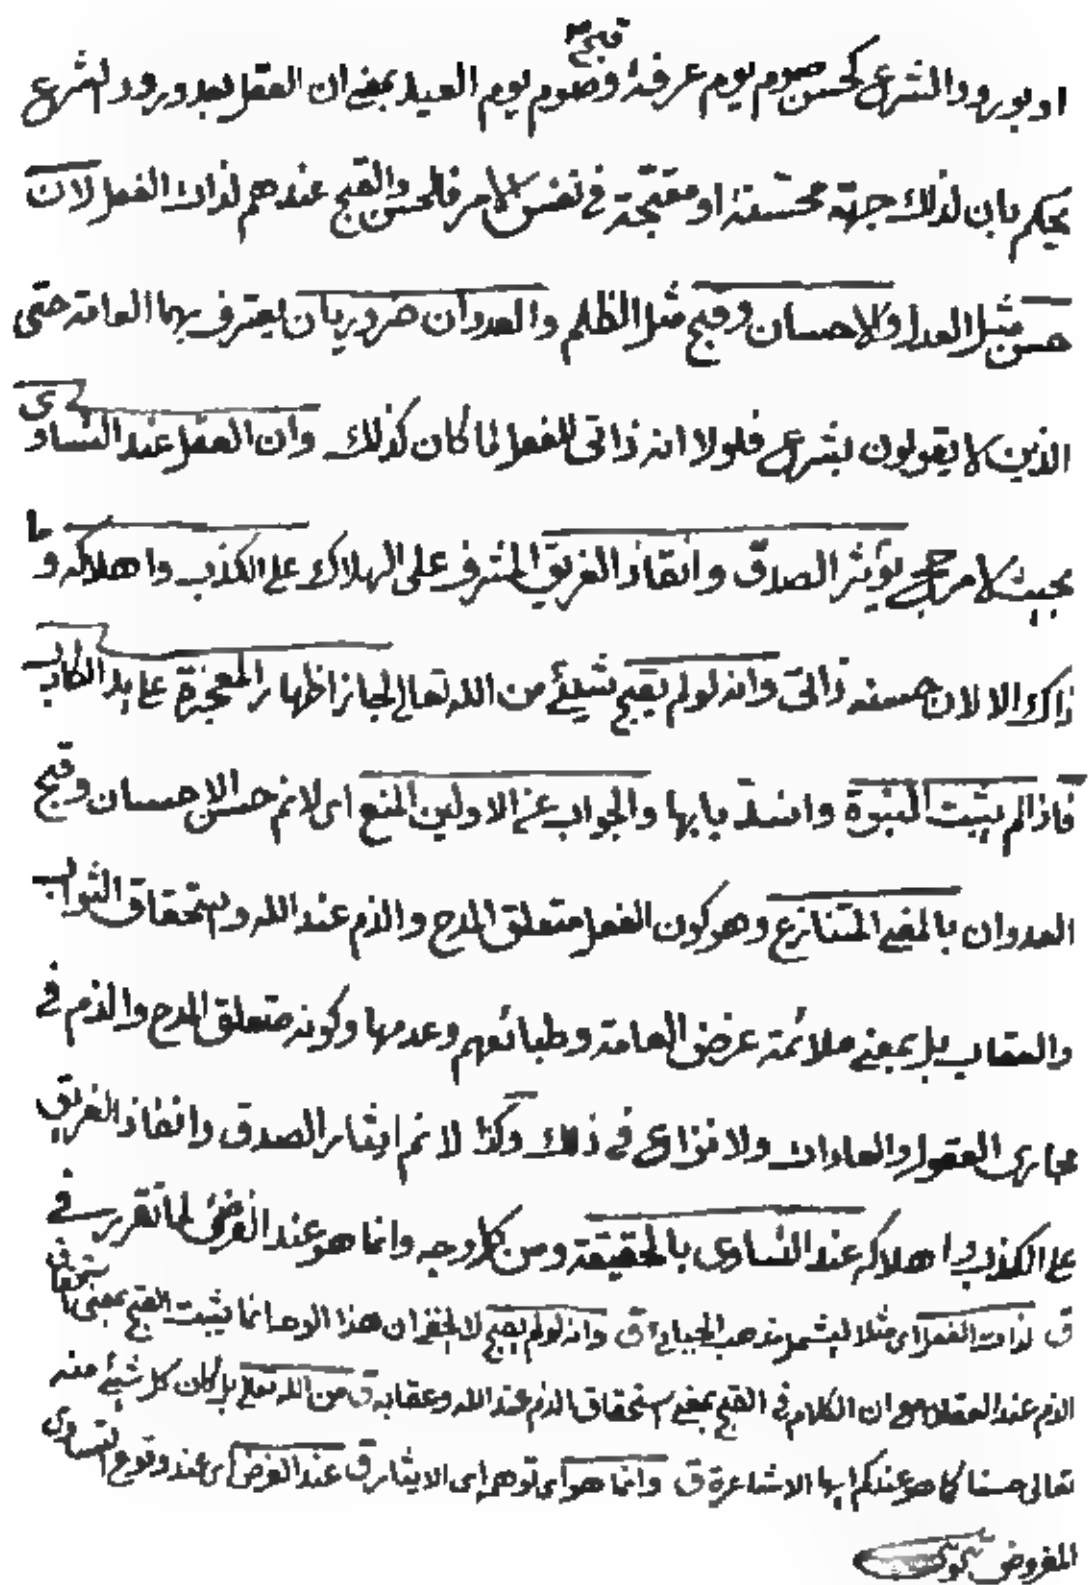 او بورود الشرع كحسن صوم يوم عرفة وقبح صوم يوم العيد بمعنى ان العقل بعد ورود الشرع
يحكم بان لذلك جهة محسنة او مقبحة في نفس الامر فالحسن والقبح عندهم لذات الفعل لان
حسن مثل العدل والاحسان وقبح مثل الظلم والعدوان ضروريان يعترف بهما العامة حتى
الذين لا يقولون بشرع فلولا انه ذاتى للفعل لما كان كذلك وان العقل عند التساوى
بحيث لا مرجح يؤثر الصدق وانقاذ الغريق المشرف على الهلاك على الكذب واهلاكه وما
ذاك الا لان حسنه ذاتى وانه لولم يقبح شيئ من الله تعالى لجاز اظهار المعجزة على يد الكاذب
فاذا لم يثبت النبوة وانسد بابها والجواب عن الاولين المنع اى لانم حسن الاحسان وقبح
العدوان بالمعنى المتنازع وهو كون الفعل متعلق المدح والذم عند الله واستحقاق الثواب
والعقاب بل بمعنى ملائمة غرض العامة وطبائعهم وعدمها وكونه متعلق المدح والذم في
مجارى العقول والعادات ولا نزاع في ذلك وكذا لا نم ايثار الصدق وانقاذ الغريق
على الكذب واهلاكه عند التساوى بالحقيقة ومن كل وجه وانما هو عند الفرضى لما تقرر في
ق لذات الفعل اى مثلا ليشمل مذهب الجبائى ق وانه لولم يقبح لا يخفى ان هذا الوجه انما يثبت القبح بمعنى استحقاق
الذم عند العقل مع ان الكلام في القبح بمعنى استحقاق الذم عند الله وعقابه ق من الله تعالى بل كان كل شيئ منه
تعالى حسنا كما هو عندكم ايها الاشاعرة ق وانما هو اى توهم اى الايثار ق عند الفرض اى عند وقوع التساوى
المفروض